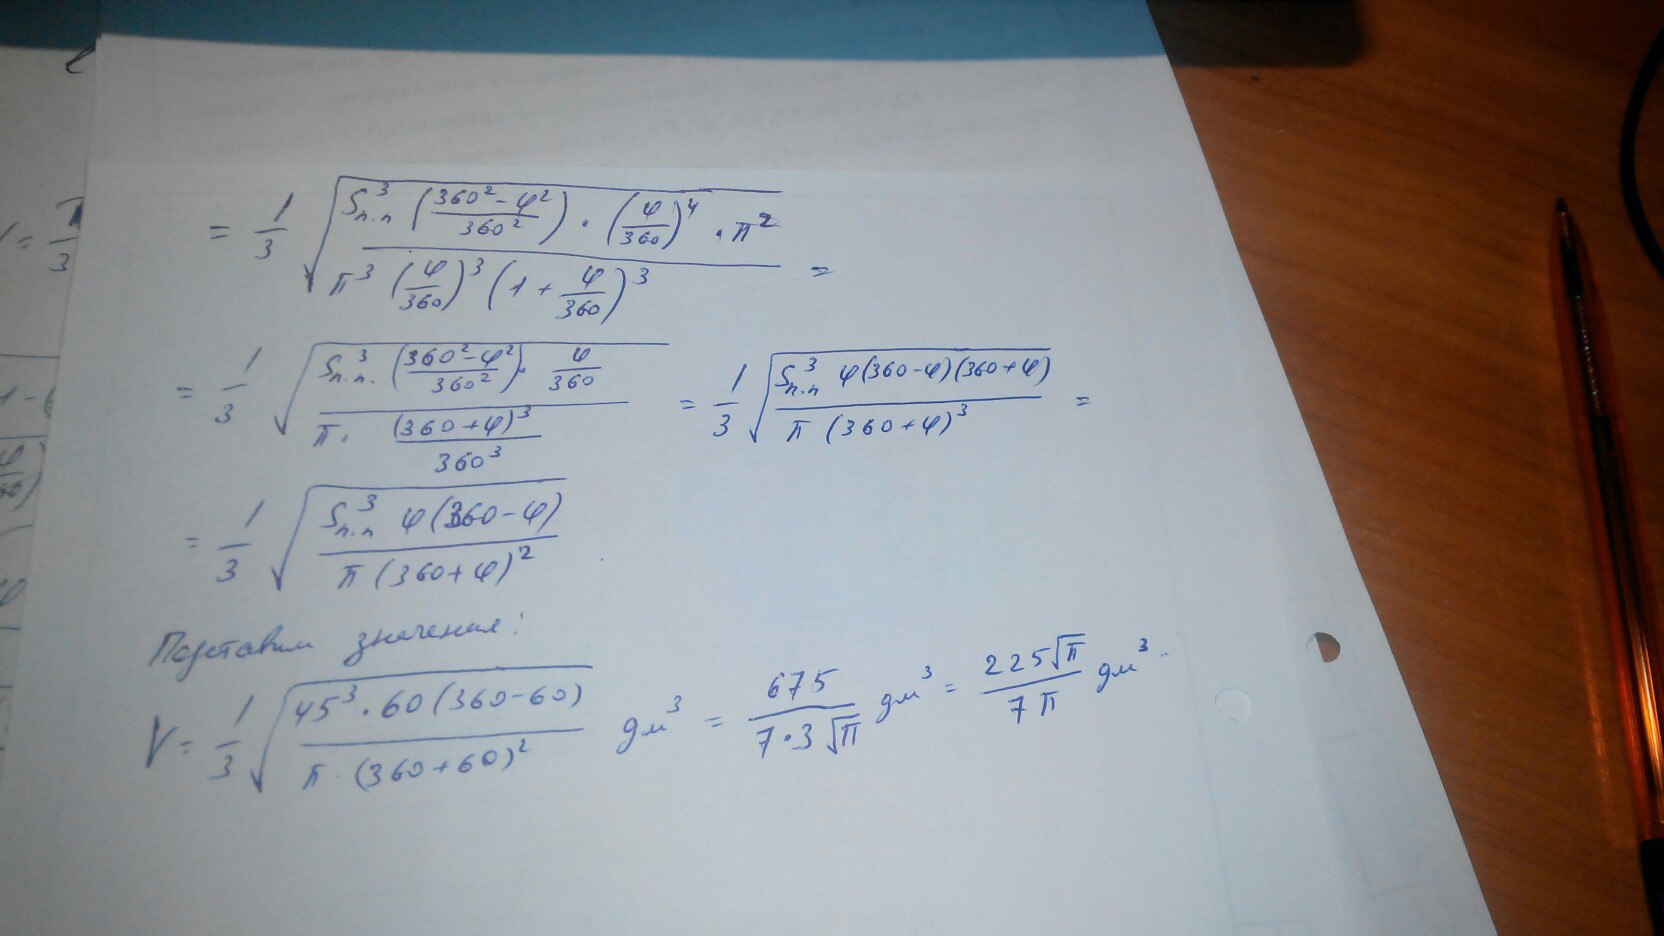 = 1/3 √(Sп.п³ ((360² - φ²)/360²) · (φ/360)⁴ · π² / (π³ (φ/360)³ (1 + φ/360)³)) =
= 1/3 √(Sп.п.³ ((360² - φ²)/360²) · φ/360 / (π · (360 + φ)³/360³)) = 1/3 √(Sп.п³ φ(360 - φ)(360 + φ) / (π (360 + φ)³)) =
= 1/3 √(Sп.п³ φ(360 - φ) / (π (360 + φ)²))
Подставим значения:
V = 1/3 √(45³ · 60 (360 - 60) / (π · (360 + 60)²)) дм³ = 675/(7 · 3√π) дм³ = 225√π/(7π) дм³.